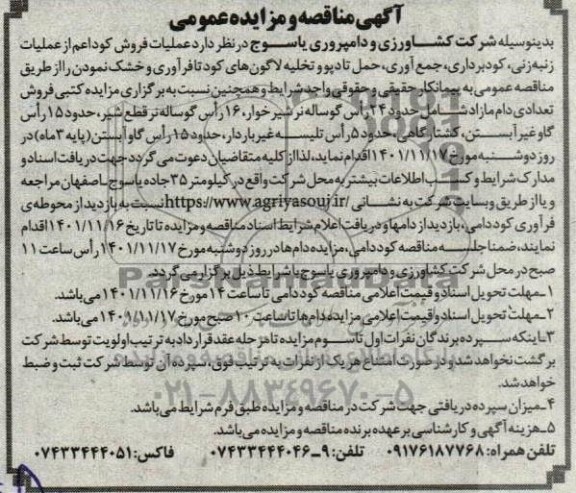 آگهی مناقصه و مزایده عمومی
بدینوسیله شرکت کشاورزی و دامپروری یاسوج در نظر دارد عملیات فروش کود اعم از عملیات
زنبه زنی، کودبرداری، جمع آوری، حمل تا دپو و تخلیه لاگون های کود تا فرآوری و خشک نمودن را از طریق
مناقصه عمومی به پیمانکار حقیقی و حقوقی واجد شرایط و همچنین نسبت به برگزاری مزایده کتبی فروش
تعدادی دام مازاد شامل حدود ۲۴ رأس گوساله نر شیر خوار، ۱۶ رأس گوساله نر قطع شیر، حدود ۱۵ رأس
گاو غیر آبستن، کشتارگاهی، حدود ۵ رأس تلیسه غیر باردار، حدود ۱۵ رأس گاو آبستن (پایه ۳ ماه) در
روز دوشنبه مورخ ۱۴۰۱/۱۱/۱۷ اقدام نماید، لذا از کلیه متقاضیان دعوت می گردد جهت دریافت اسناد و
مدارک شرایط و کسب اطلاعات بیشتر به محل شرکت واقع در کیلومتر ۳۵ جاده یاسوج ـ اصفهان مراجعه
و یا از طریق وبسایت شرکت به نشانی https://www.agriyasouj.ir/ نسبت به بازدید از محوطه ی
فرآوری کود دامی، بازدید از دامها و دریافت اعلام شرایط اسناد مناقصه و مزایده تا تاریخ ۱۴۰۱/۱۱/۱۶ اقدام
نمایند، ضمنا جلسه مناقصه کود دامی، مزایده دام ها در روز دوشنبه مورخ ۱۴۰۱/۱۱/۱۷ رأس ساعت ۱۱
صبح در محل شرکت کشاورزی و دامپروری یاسوج با شرایط ذیل برگزار می گردد.
۱ـ مهلت تحویل اسناد و قیمت اعلامی مناقصه کود دامی تا ساعت ۱۴ مورخ ۱۴۰۱/۱۱/۱۶ می باشد.
۲ـ مهلت تحویل اسناد و قیمت اعلامی مزایده دام ها تا ساعت ۱۰ صبح مورخ ۱۴۰۱/۱۱/۱۷ می باشد.
۳ـ اینکه سپرده برندگان نفرات اول تا سوم مزایده تا مرحله عقد قرارداد به ترتیب اولویت توسط شرکت
برگشت نخواهد شد و در صورت امتناع هر یک از نفرات به ترتیب فوق، سپرده آن توسط شرکت ثبت و ضبط
خواهد شد.
۴ـ میزان سپرده دریافتی جهت شرکت در مناقصه و مزایده طبق فرم شرایط می باشد.
۵ـ هزینه آگهی و کارشناسی بر عهده برنده مناقصه و مزایده می باشد.
تلفن همراه: ۰۹۱۷۶۱۸۷۷۶۸ تلفن: ۹ـ۰۷۴۳۳۴۴۴۰۴۶ فاکس: ۰۷۴۳۳۴۴۴۰۵۱
ParsNamadData
۰۲۱-۸۸۳۴۹۶۷۰-۵